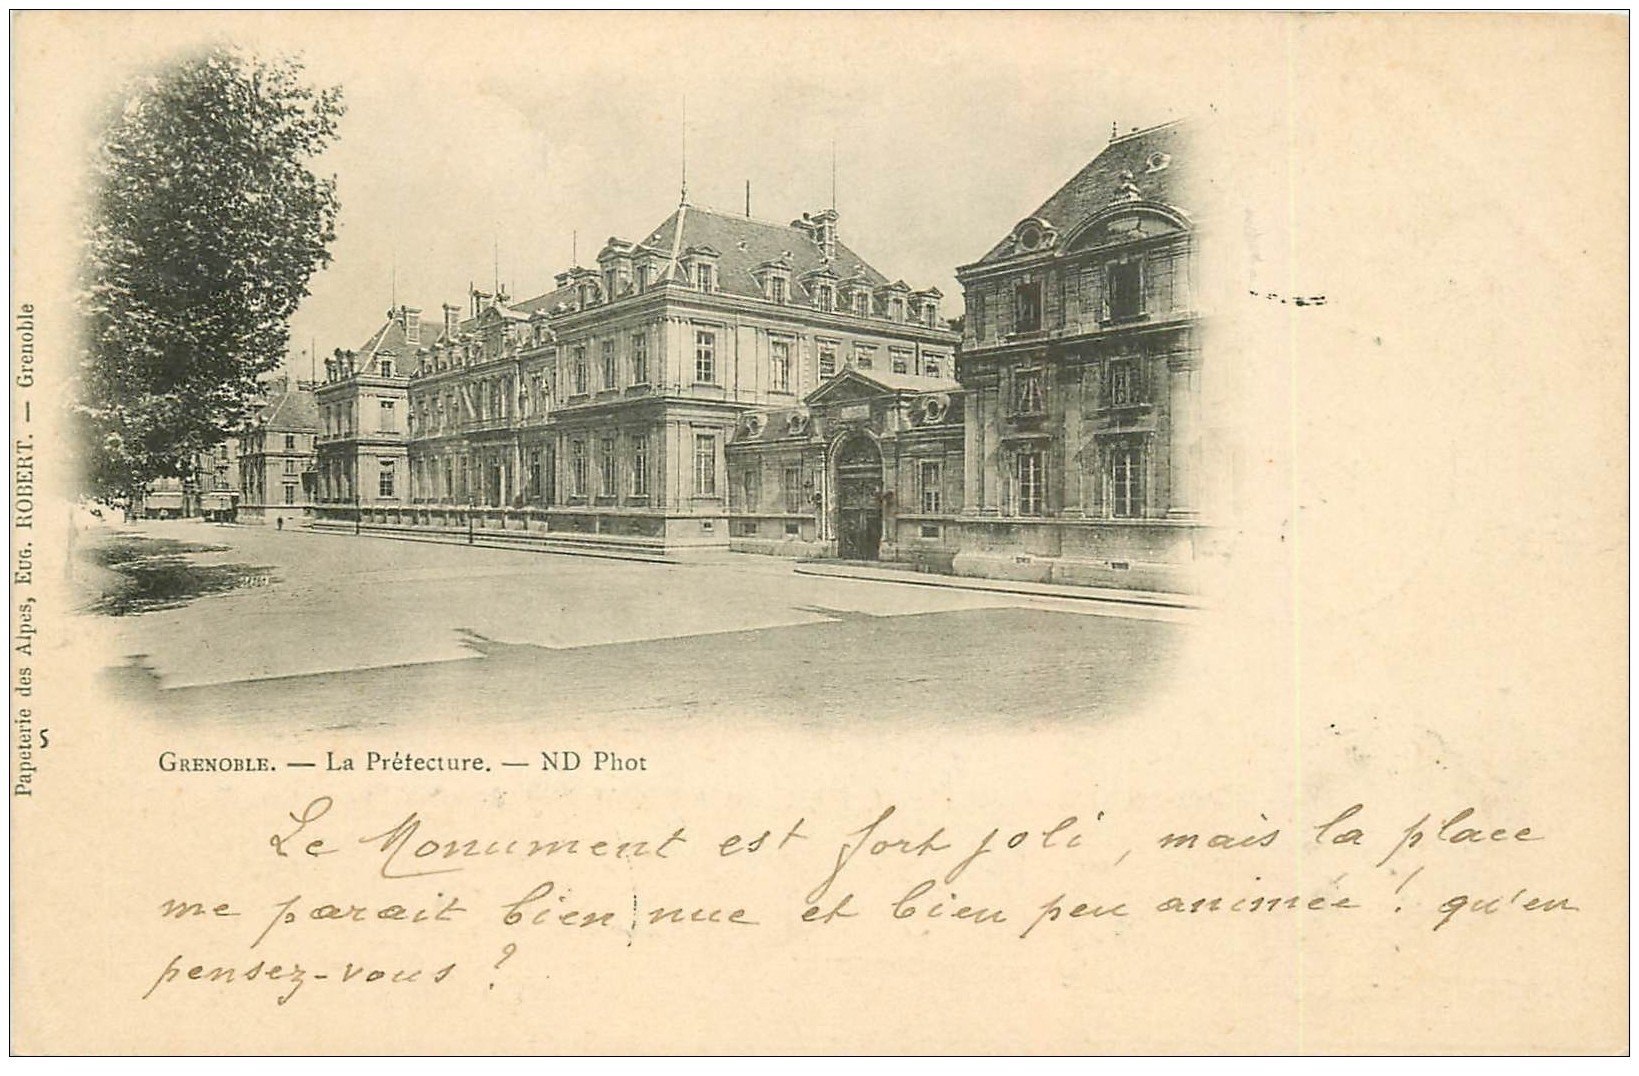 Papeterie des Alpes, EUG. ROBERT. — Grenoble
5
GRENOBLE. — La Préfecture. — ND Phot
Le Monument est fort joli, mais la place
me parait bien nue et bien peu animée ! qu'en
pensez-vous ?